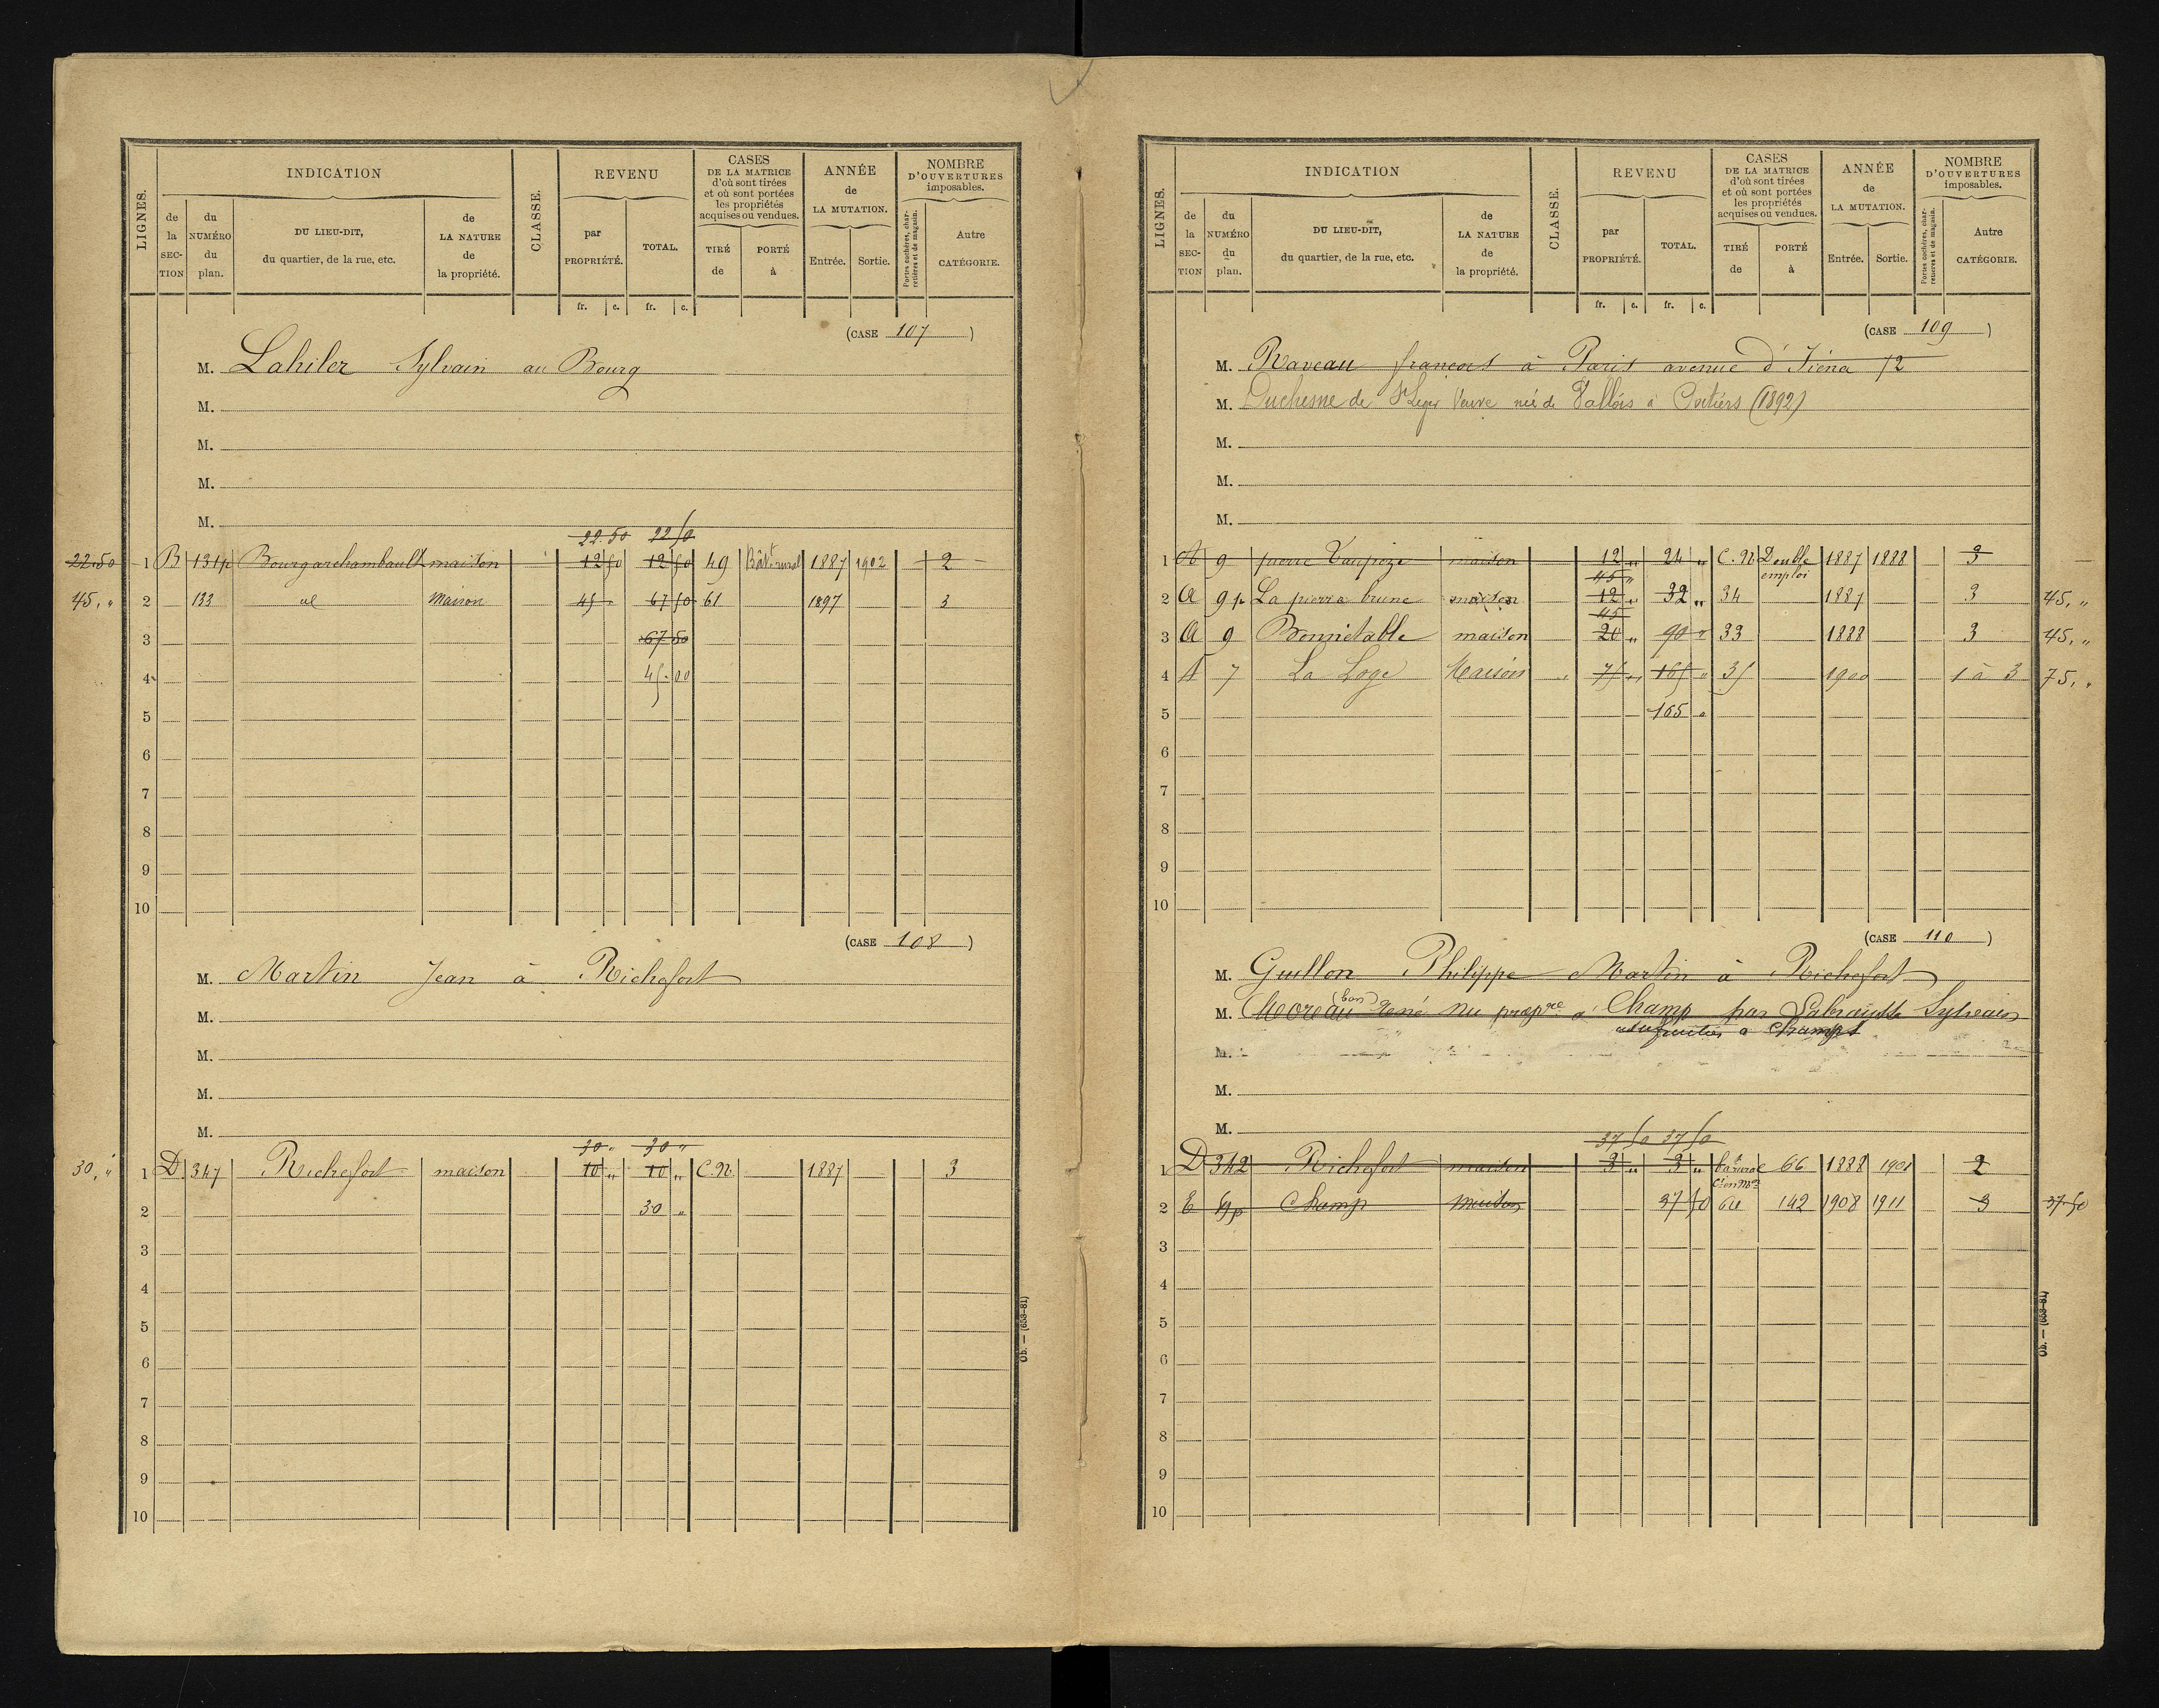 LIGNES. INDICATION CLASSE. REVENU CASES DE LA MATRICE d'où sont tirées et où sont portées les propriétés acquises ou vendues. ANNÉE de LA MUTATION. NOMBRE D'OUVERTURES imposables.
de la SECTION du NUMÉRO du plan. DU LIEU-DIT, du quartier, de la rue, etc. de LA NATURE de la propriété. par PROPRIÉTÉ. TOTAL. TIRÉ de PORTÉ à Entrée. Sortie. Portes cochères, charretières et de magasin. Autre CATÉGORIE.
fr. c. fr. c.
(CASE 107)
M. Lahiler Sylvain au Bourg
M.
M.
M.
M.
22.50 22 50
22.50 1 B 131p Bourgarchambault maison 12 50 12 50 49 Bât.t rural 1887 1902 2
45, " 2 133 Maison 45 67 50 61 1897 3
3 67 50
4 45.00
5
6
7
8
9
10
(CASE 108)
M. Martin Jean à Richefort
M.
M.
M.
M.
30 " 30 "
30, " 1 D 347 Richefort maison 10 " 10 " C.N. 1887 3
2 30 "
3
4
5
6
7
8
9
10
Ob. — (653-81)
LIGNES. INDICATION CLASSE. REVENU CASES DE LA MATRICE d'où sont tirées et où sont portées les propriétés acquises ou vendues. ANNÉE de LA MUTATION. NOMBRE D'OUVERTURES imposables.
de la SECTION du NUMÉRO du plan. DU LIEU-DIT, du quartier, de la rue, etc. de LA NATURE de la propriété. par PROPRIÉTÉ. TOTAL. TIRÉ de PORTÉ à Entrée. Sortie. Portes cochères, charretières et de magasin. Autre CATÉGORIE.
fr. c. fr. c.
(CASE 109)
M. Raveau francois à Paris avenue d'Jiéna 72
M. Duchesne de St Leger Veuve née de Vallois à Poitiers (1892)
M.
M.
M.
1 A 9 pierre maison 12 " 24 " C.N Double emploi 1887 1888 3
45 "
2 A 9p La pierre brune maison 12 " 32 " 34 1887 3 45, "
45
3 A 9 Bonnietable maison 20 " 90 " 33 1888 3 45, "
4 A 7 La Loge Maison 75 " 165 " 35 1900 1 à 3 75, "
5 165 "
6
7
8
9
10
(CASE 110)
M. Guillon Philippe Martin à Richefort
M. Moreau (bon) René nu propre à Champ par Labrausse Sylvain
usufruitier à Champs
M.
M.
M.
37 50 37 50
1 D 342 Richefort maison 3 " 3 " 66 1888 1901 2
2 E Champ maison 37 50 142 1908 1911 3 37.50
3
4
5
6
7
8
9
10
Ob. — (653-81)